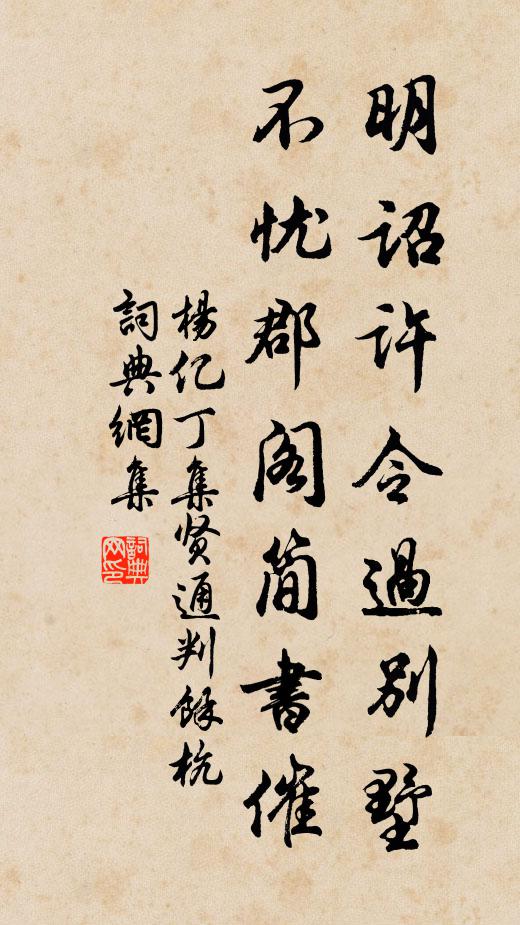 明诏许令過别墅
不忧郡阁简書催
楊亿丁集贤通判餘杭
詞典網集
詞典网印